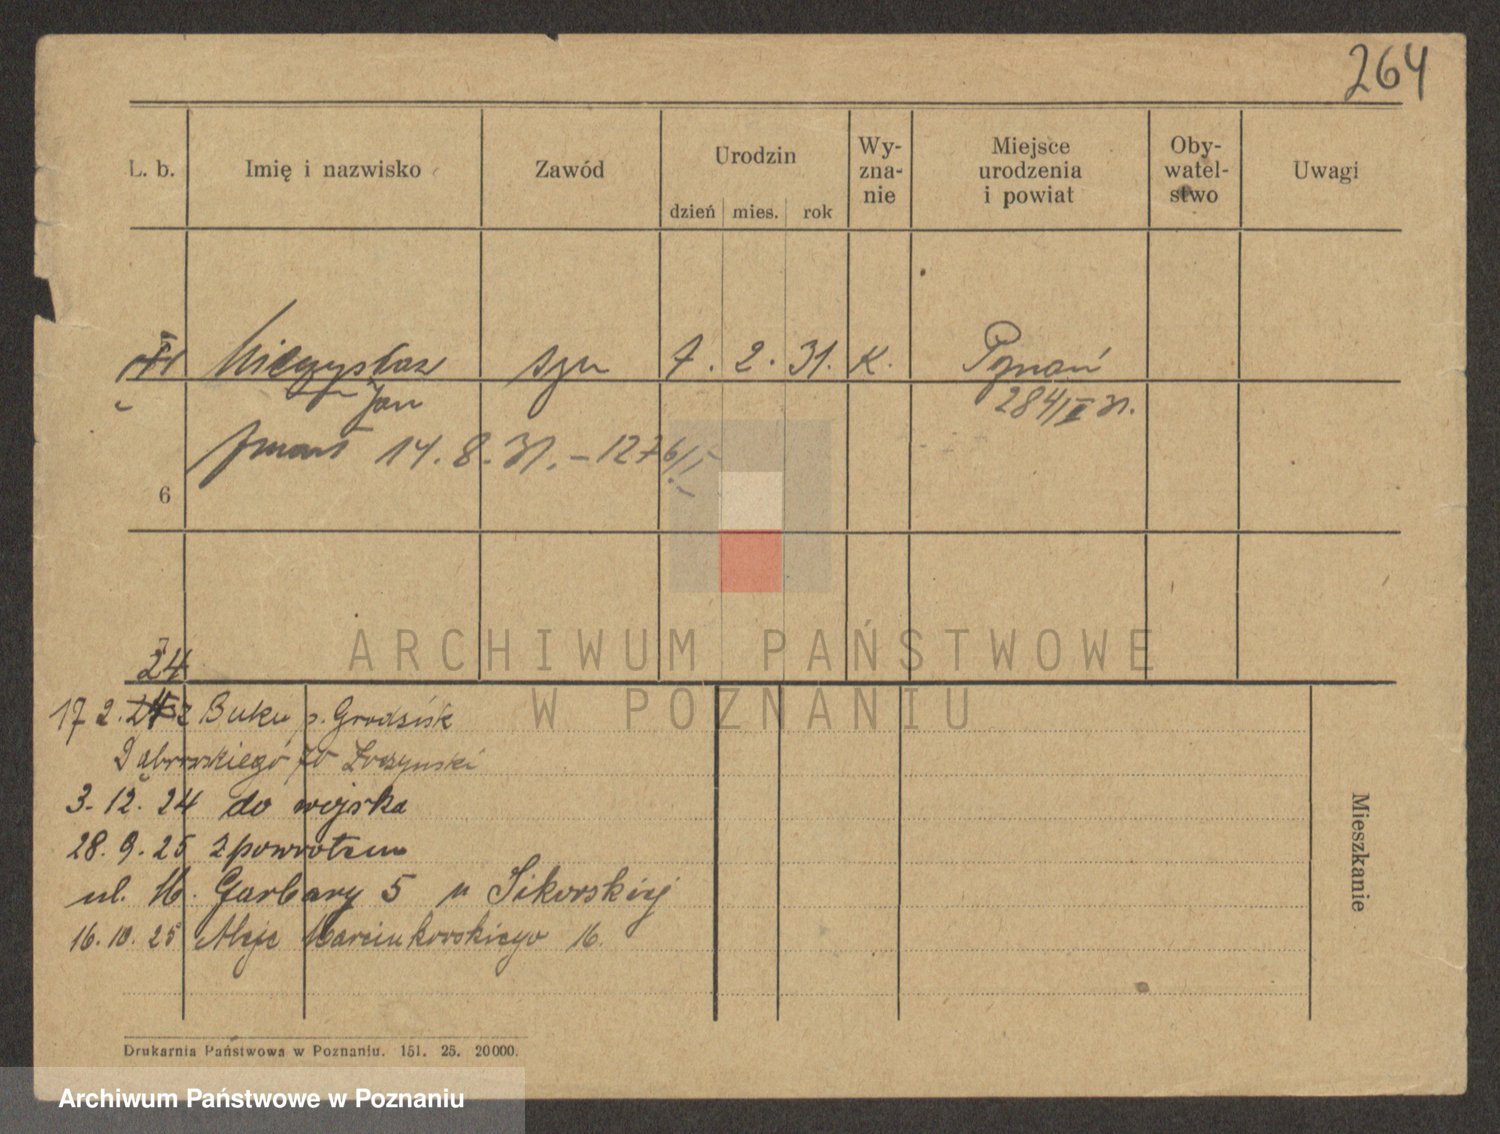 264
L. b. Imię i nazwisko Zawód Urodzin Wy-zna-nie Miejsce urodzenia i powiat Oby-watel-stwo Uwagi
dzień mies. rok
Mieczysław syn 7. 2. 31. K. Poznań
Jan 284/II 31.
zmarł 14. 8. 31. – 1276/I
6
ARCHIWUM PAŃSTWOWE
W POZNANIU
24
17 2. 24 z Buku p. Grodzisk
Dąbrowskiego 70
3. 12. 24 do wojska
28. 9. 25 z powrotem
ul. W. Garbary 5 u Sikorskiej
16. 10. 25 Aleje Marcinkowskiego 16.
Mieszkanie
Drukarnia Państwowa w Poznaniu. 151. 25. 20000.
Archiwum Państwowe w Poznaniu